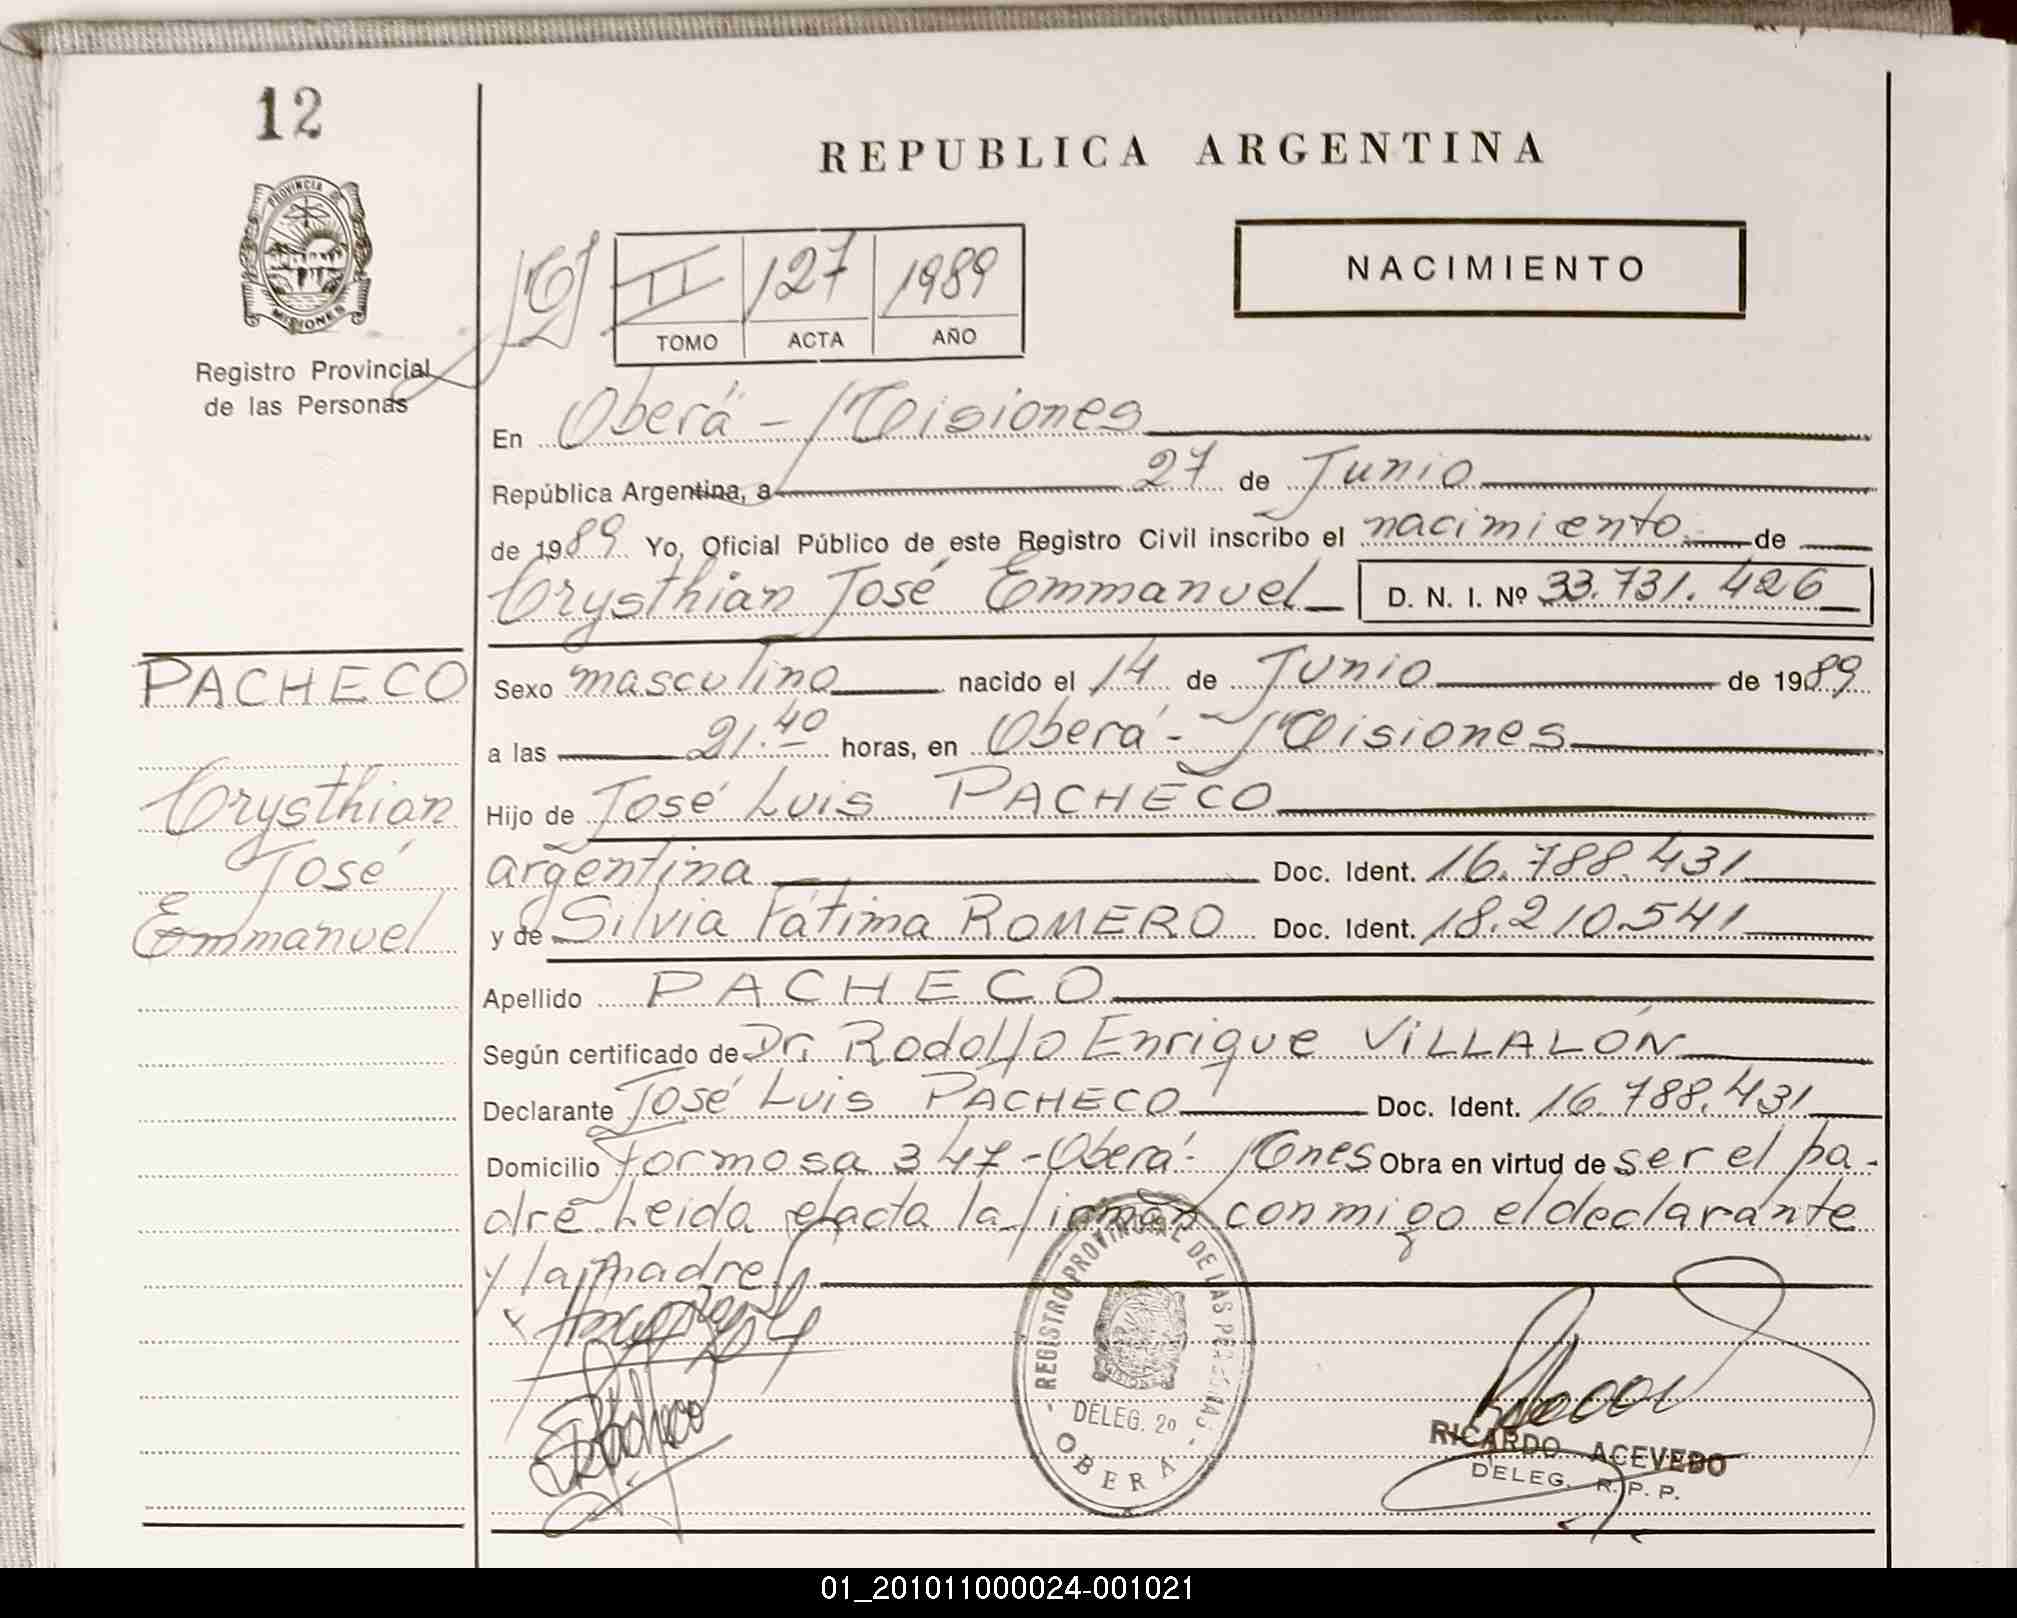 12
REPUBLICA ARGENTINA
PROVINCIA DE
MISIONES
Registro Provincial
de las Personas
II 127 1989
TOMO ACTA AÑO
NACIMIENTO
En Oberá - Misiones
República Argentina, a 27 de Junio
de 1989 Yo, Oficial Público de este Registro Civil inscribo el nacimiento de
Crysthian José Emmanuel D. N. I. Nº 33.731.426
PACHECO
Crysthian
José
Emmanuel
Sexo masculino nacido el 14 de Junio de 1989
a las 21.40 horas, en Oberá - Misiones
Hijo de José Luis PACHECO
argentina Doc. Ident. 16.788.431
y de Silvia Fátima ROMERO Doc. Ident. 18.210.541
Apellido PACHECO
Según certificado de Dr. Rodolfo Enrique VILLALÓN
Declarante José Luis PACHECO Doc. Ident. 16.788.431
Domicilio Formosa 347 - Oberá - Mnes Obra en virtud de ser el pa-
dre. Leida el acta la firman conmigo el declarante
y la madre
- REGISTRO PROVINCIAL DE LAS PERSONAS -
DELEG. 2º
OBERA
RICARDO ACEVEDO
DELEG. R. P. P.
01_201011000024-001021